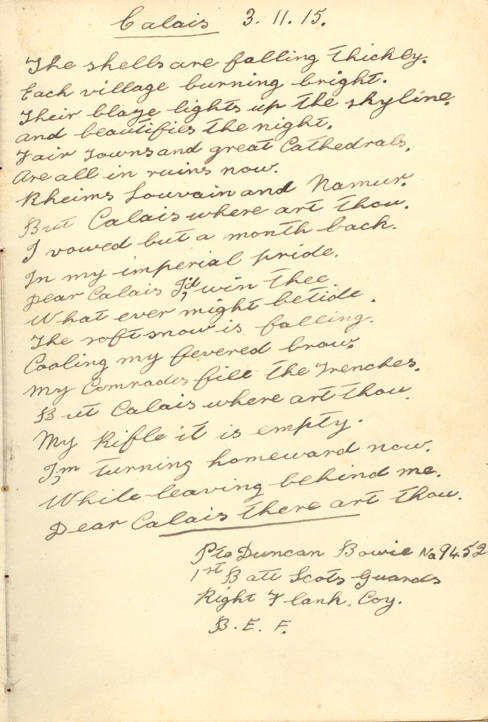 Calais 3.11.15.
The shells are falling thickly.
Each village burning bright.
Their blaze lights up the skyline
and beautifies the night.
Fair Towns and great Cathedrals,
Are all in ruins now.
Rheims Louvain and Namur.
But Calais where art thou.
I vowed but a month back.
In my imperial pride.
Dear Calais I'd, win thee
What ever might betide.
The soft snow is falling.
Cooling my fevered brow.
My Comrades fill the Trenches.
But Calais where art thou.
My Rifle it is empty.
I,m turning homeward now.
While leaving behind me.
Dear Calais there art thou.
Pte Duncan Bowie No 9452
1st Batt Scots Guards
Right Flank, Coy.
B. E. F.